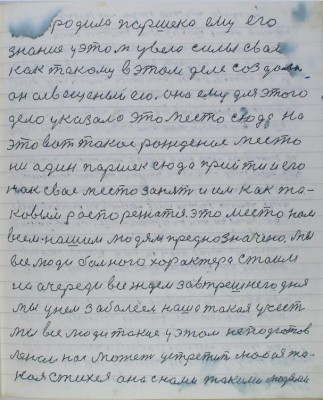 родила паршека ему его
знание у этом увела силы свае
как такому в этом деле создали
он оле его, она ему для этого
дело указало это место сюда на
это вот такое рождение место
ни адин паршек сюда прийти и его
как свае место занят и им как та-
ковым распорежатися это место нам
всем нашим людям предназначено, мы
все люди балного характера стаим
на очереди все ждем завтрешнего дня
мы у нем забалеем наша такая участ
мы все люди такие у этом неподготов
леные нас может устретит любая та-
кая стихея она с нами такими людями